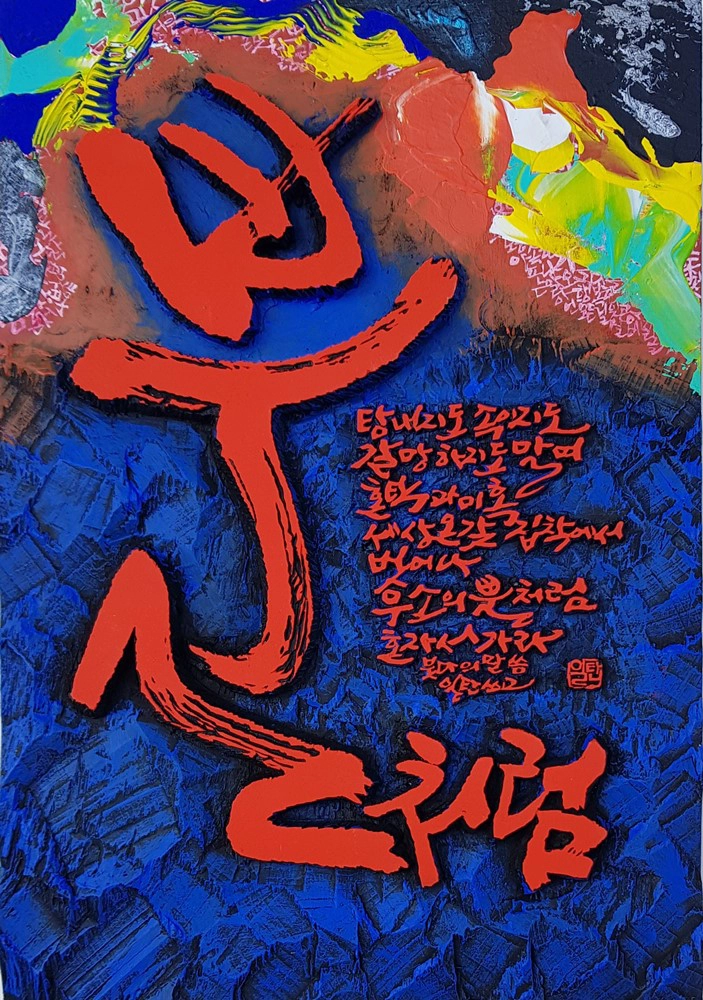 뿔처럼
탐내지도 속이지도
갈망하지도 말며
혼탁과 미혹
세상 온갖 집착에서
벗어나
무소의 뿔처럼
혼자서 가라
붓다의 말씀
일탄